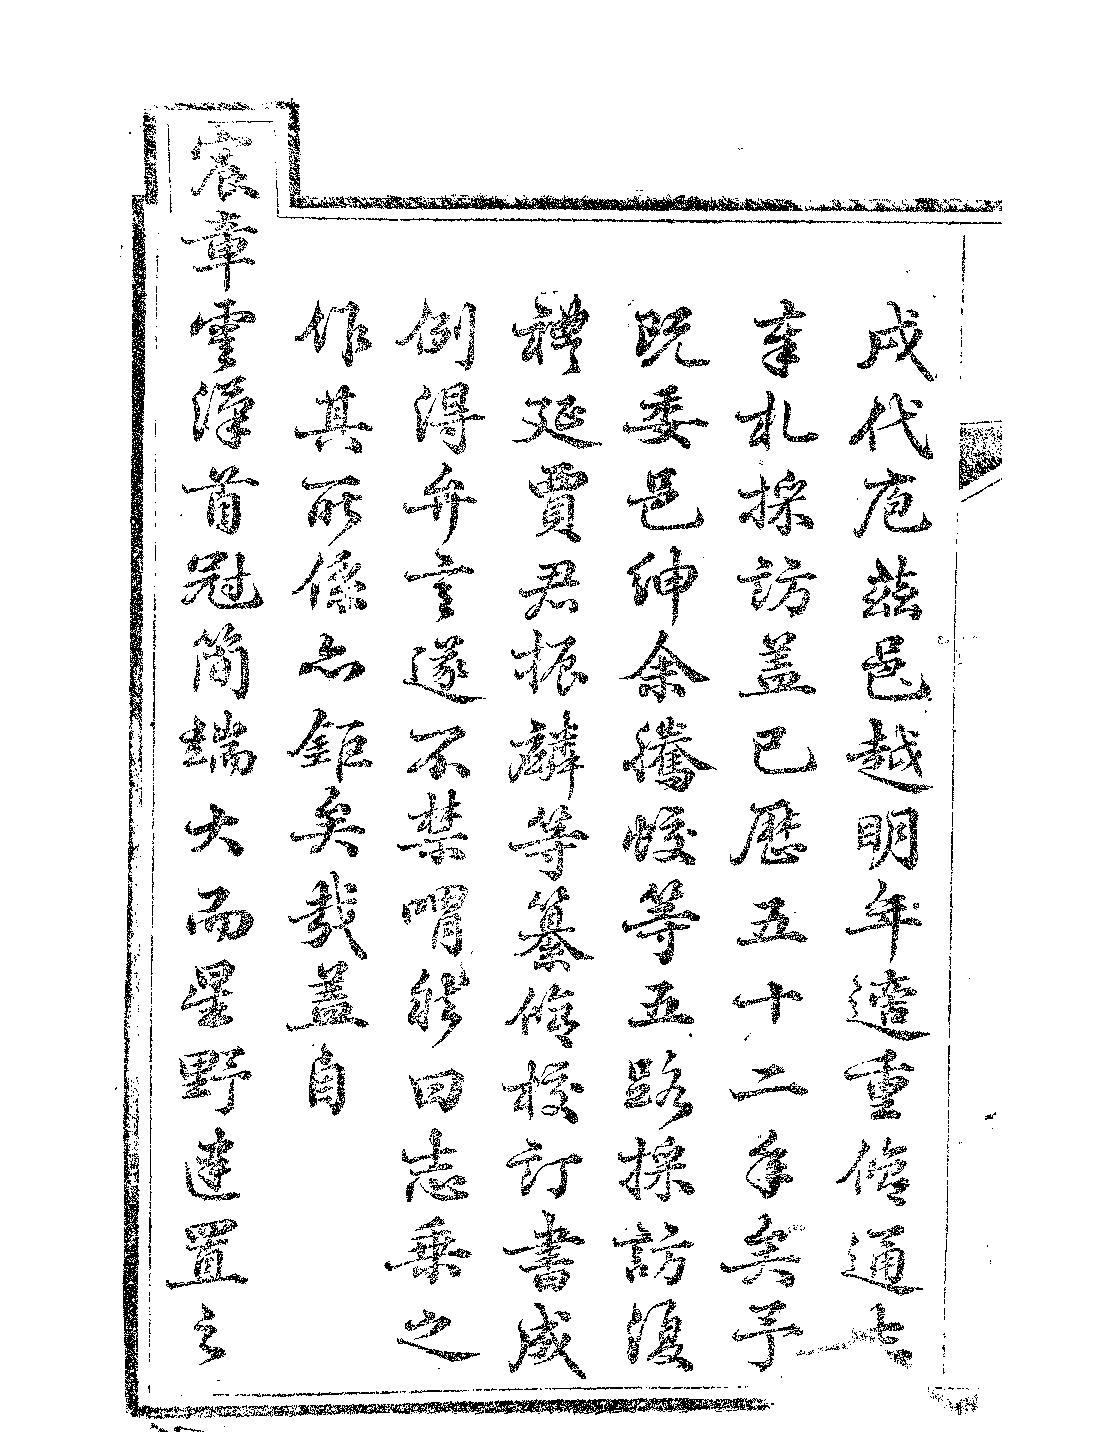 戍代庖茲邑越明年遭重修通志
奉札採訪蓋已歷五十二年矣予
既委邑紳余騰蛟等五路採訪復
禮延賈君振麟等纂修校訂書成
例得弁言遂不禁喟然曰志乗之
作其所係亦鉅矣哉蓋自
宸章雲漢首冠簡端大而星野建置之